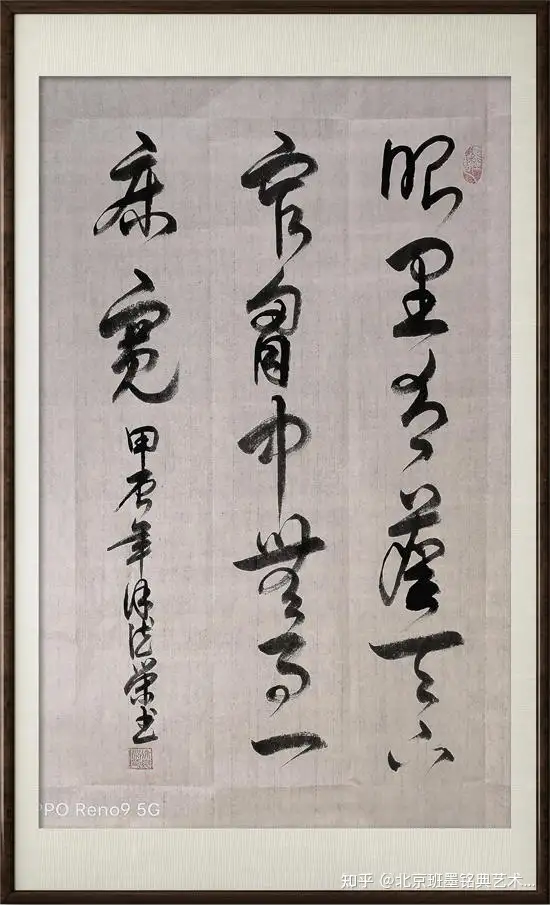 眼里有塵天下
窄胷中無事一
床寬
甲辰年徐法荣书
PO Reno9 5G
知乎 @北京班墨铭典艺术...